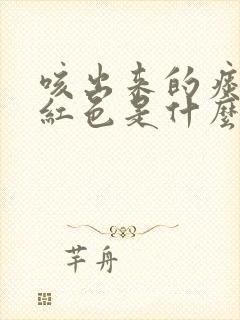 咳出来的痰
紅色是什麼
芊舟